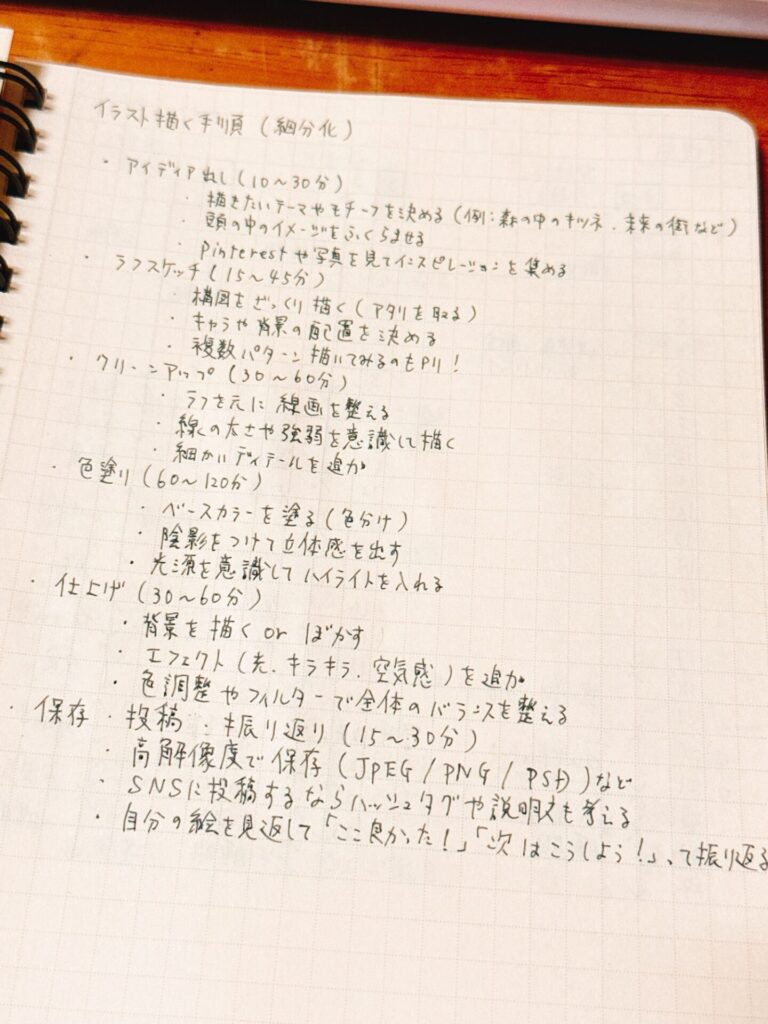 イラスト描く手順（細分化）
・アイディア出し（10～30分）
・描きたいテーマやモチーフを決める（例：森の中のキツネ、未来の街など）
・頭の中のイメージをふくらませる
・Pinterestや写真を見てインスピレーションを集める
・ラフスケッチ（15～45分）
・構図をざっくり描く（アタリを取る）
・キャラや背景の配置を決める
・複数パターン描いてみるのもアリ！
・クリーンアップ（30～60分）
・ラフを元に線画を整える
・線の太さや強弱を意識して描く
・細かいディテールを追加
・色塗り（60～120分）
・ベースカラーを塗る（色分け）
・陰影をつけて立体感を出す
・光源を意識してハイライトを入れる
・仕上げ（30～60分）
・背景を描く or ぼかす
・エフェクト（光、キラキラ、空気感）を追加
・色調整やフィルターで全体のバランスを整える
・保存・投稿・振り返り（15～30分）
・高解像度で保存（JPEG/PNG/PSD）など
・SNSに投稿するならハッシュタグや説明文も考える
・自分の絵を見返して「ここ良かった！」「次はこうしよう！」、って振り返る